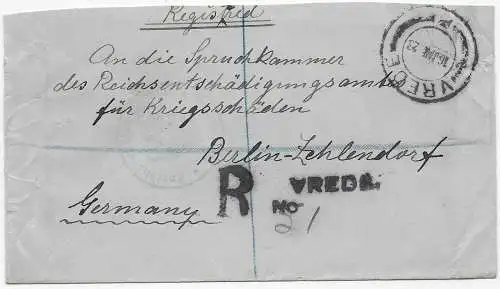 Registred
An die Spruchkammer
des Reichsentschädigungsamts
für Kriegsschäden
Berlin-Zehlendorf
Germany
VREDE
R
VREDE.
No
1